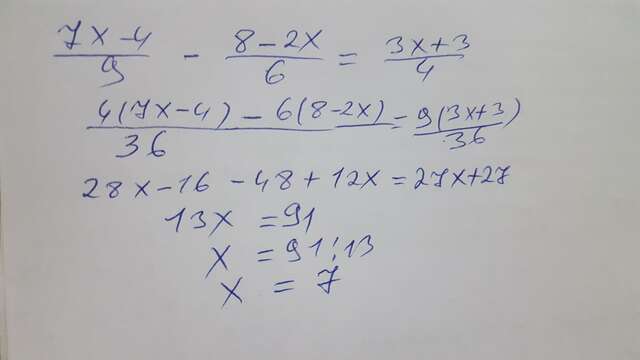 7x-4/9 - 8-2x/6 = 3x+3/4
4(7x-4)-6(8-2x)/36 = 9(3x+3)/36
28x-16-48+12x=27x+27
13x=91
x=91:13
x=7